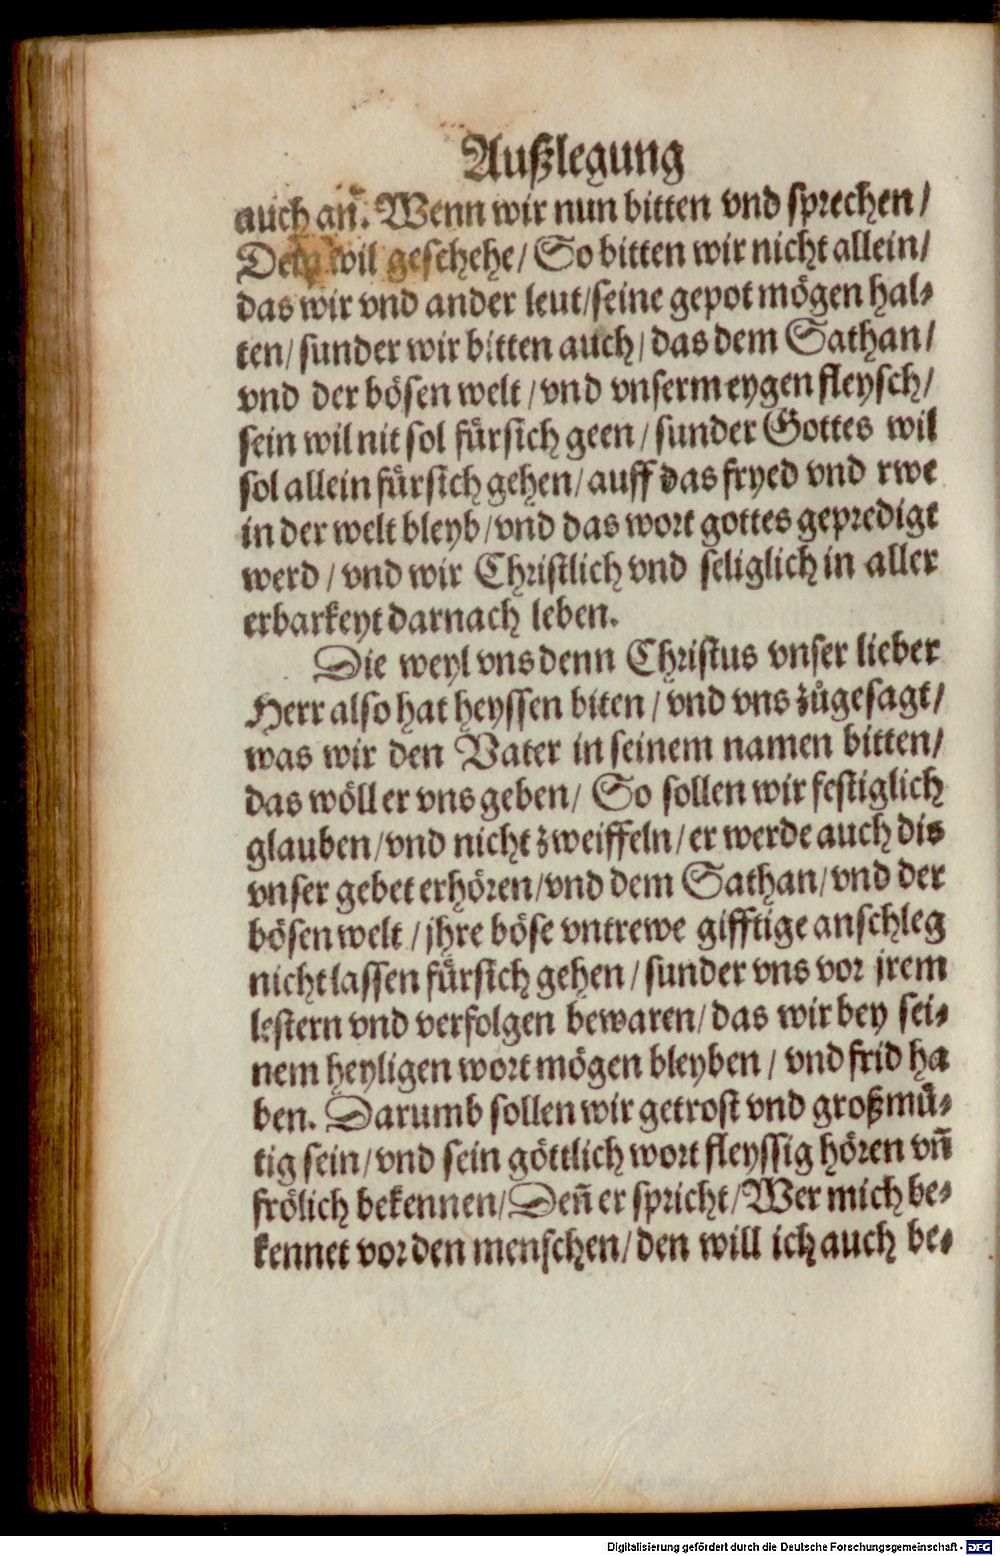 Außlegung
auch an̄. Wenn wir nun bitten vnd sprechen/
Dein wil geschehe/ So bitten wir nicht allein/
das wir vnd ander leut/seine gepot mögen hal⸗
ten/ sunder wir bitten auch/ das dem Sathan/
vnd der bösen welt/ vnd vnserm eygen fleysch/
sein wil nit sol fürsich geen/ sunder Gottes wil
sol allein fürsich gehen/ auff das fryed vnd rwe
in der welt bleyb/vnd das wort gottes geprediget
werd/ vnd wir Christlich vnd seliglich in aller
erbarkeyt darnach leben.
Die weyl vns denn Christus vnser lieber
Herr also hat heyssen biten/ vnd vns zůgesagt/
was wir den Vater in seinem namen bitten/
das wöll er vns geben/ So sollen wir festiglich
glauben/vnd nicht zweiffeln/er werde auch dis
vnser gebet erhören/vnd dem Sathan/vnd der
bösen welt/ jhre böse vntrewe gifftige anschleg
nicht lassen fürsich gehen/ sunder vns vor jrem
lestern vnd verfolgen bewaren/ das wir bey sei⸗
nem heyligen wort mögen bleyben/ vnd frid ha
ben. Darumb sollen wir getrost vnd großmü⸗
tig sein/vnd sein göttlich wort fleyssig hören vn̄
frölich bekennen/ Den̄ er spricht/ Wer mich be⸗
kennet vor den menschen/ den will ich auch be⸗
Digitalisierung gefördert durch die Deutsche Forschungsgemeinschaft - DFG